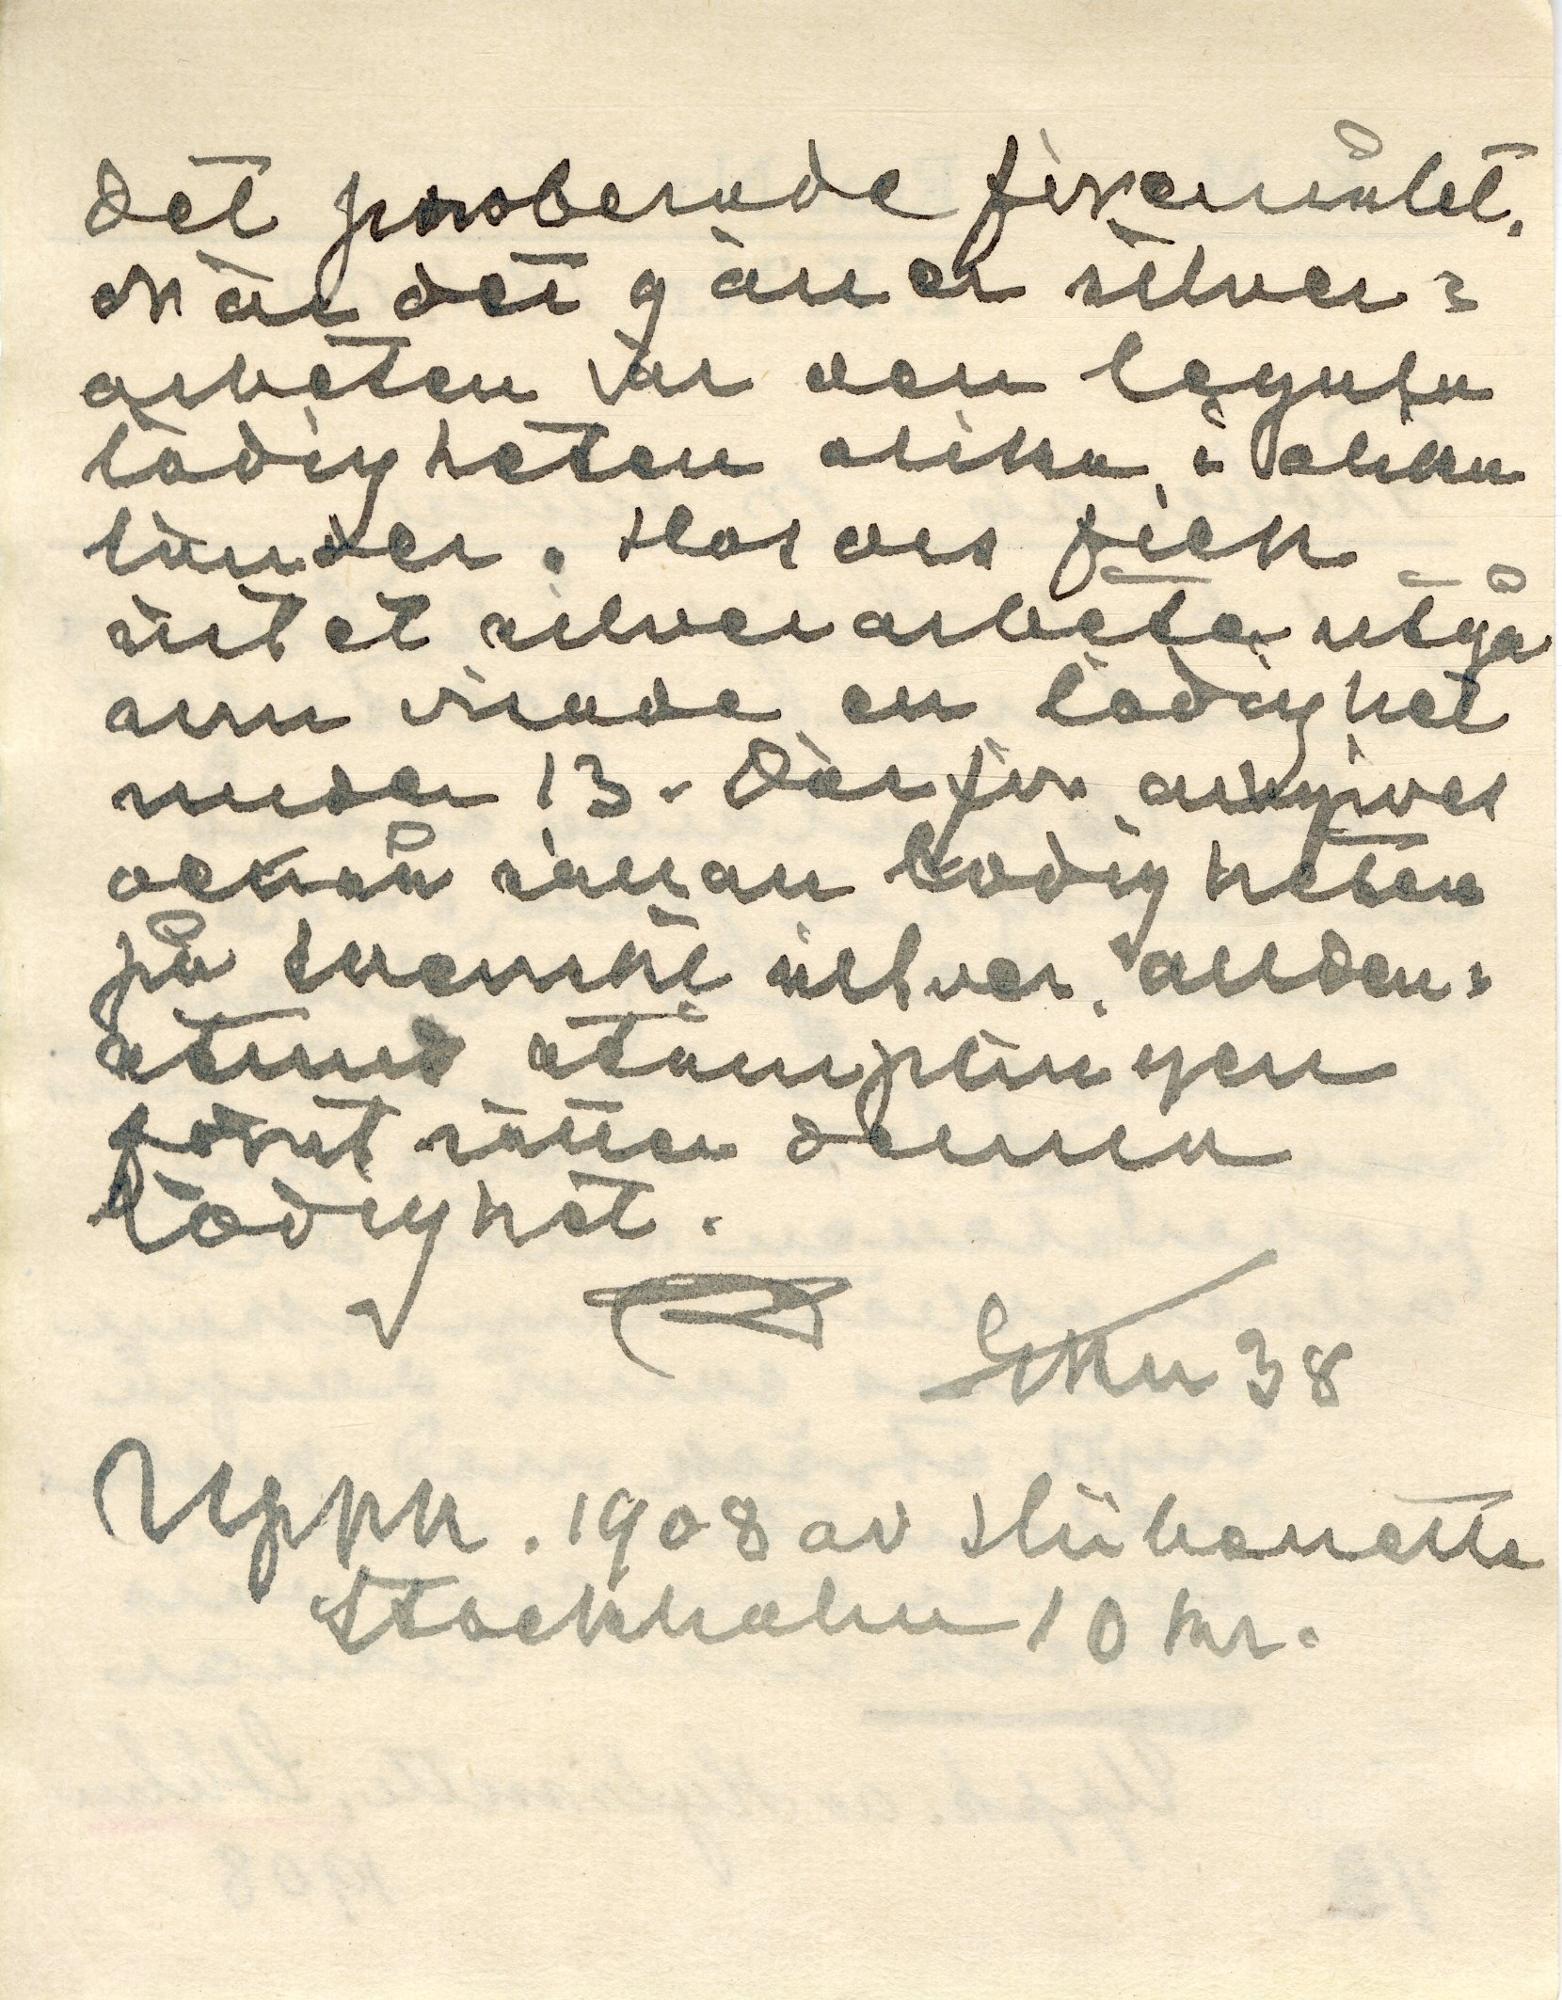 det proberade föremålet.
När det gäller silver=
arbeten var den legala
lödigheten olika i olika
länder. Hos oss fick
intet silverarbete utgå
som visade en lödighet
under 13. Därför angives
också sällan lödigheten
på svenskt silver, allden=
stund stämplingen
förutsätter denna
lödighet.
38
Uppk. 1908 av Hübenette
Stockholm 10 kr.